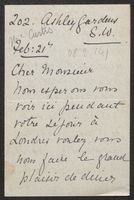 202. Ashley Gardens
S.W.
Mrs Curtis
Feb: 21st
Cher Monsieur
Nous espérons vous
voir ici pendant
votre séjour à
Londres voulez vous
nous faire le grand
plaisir de dîner